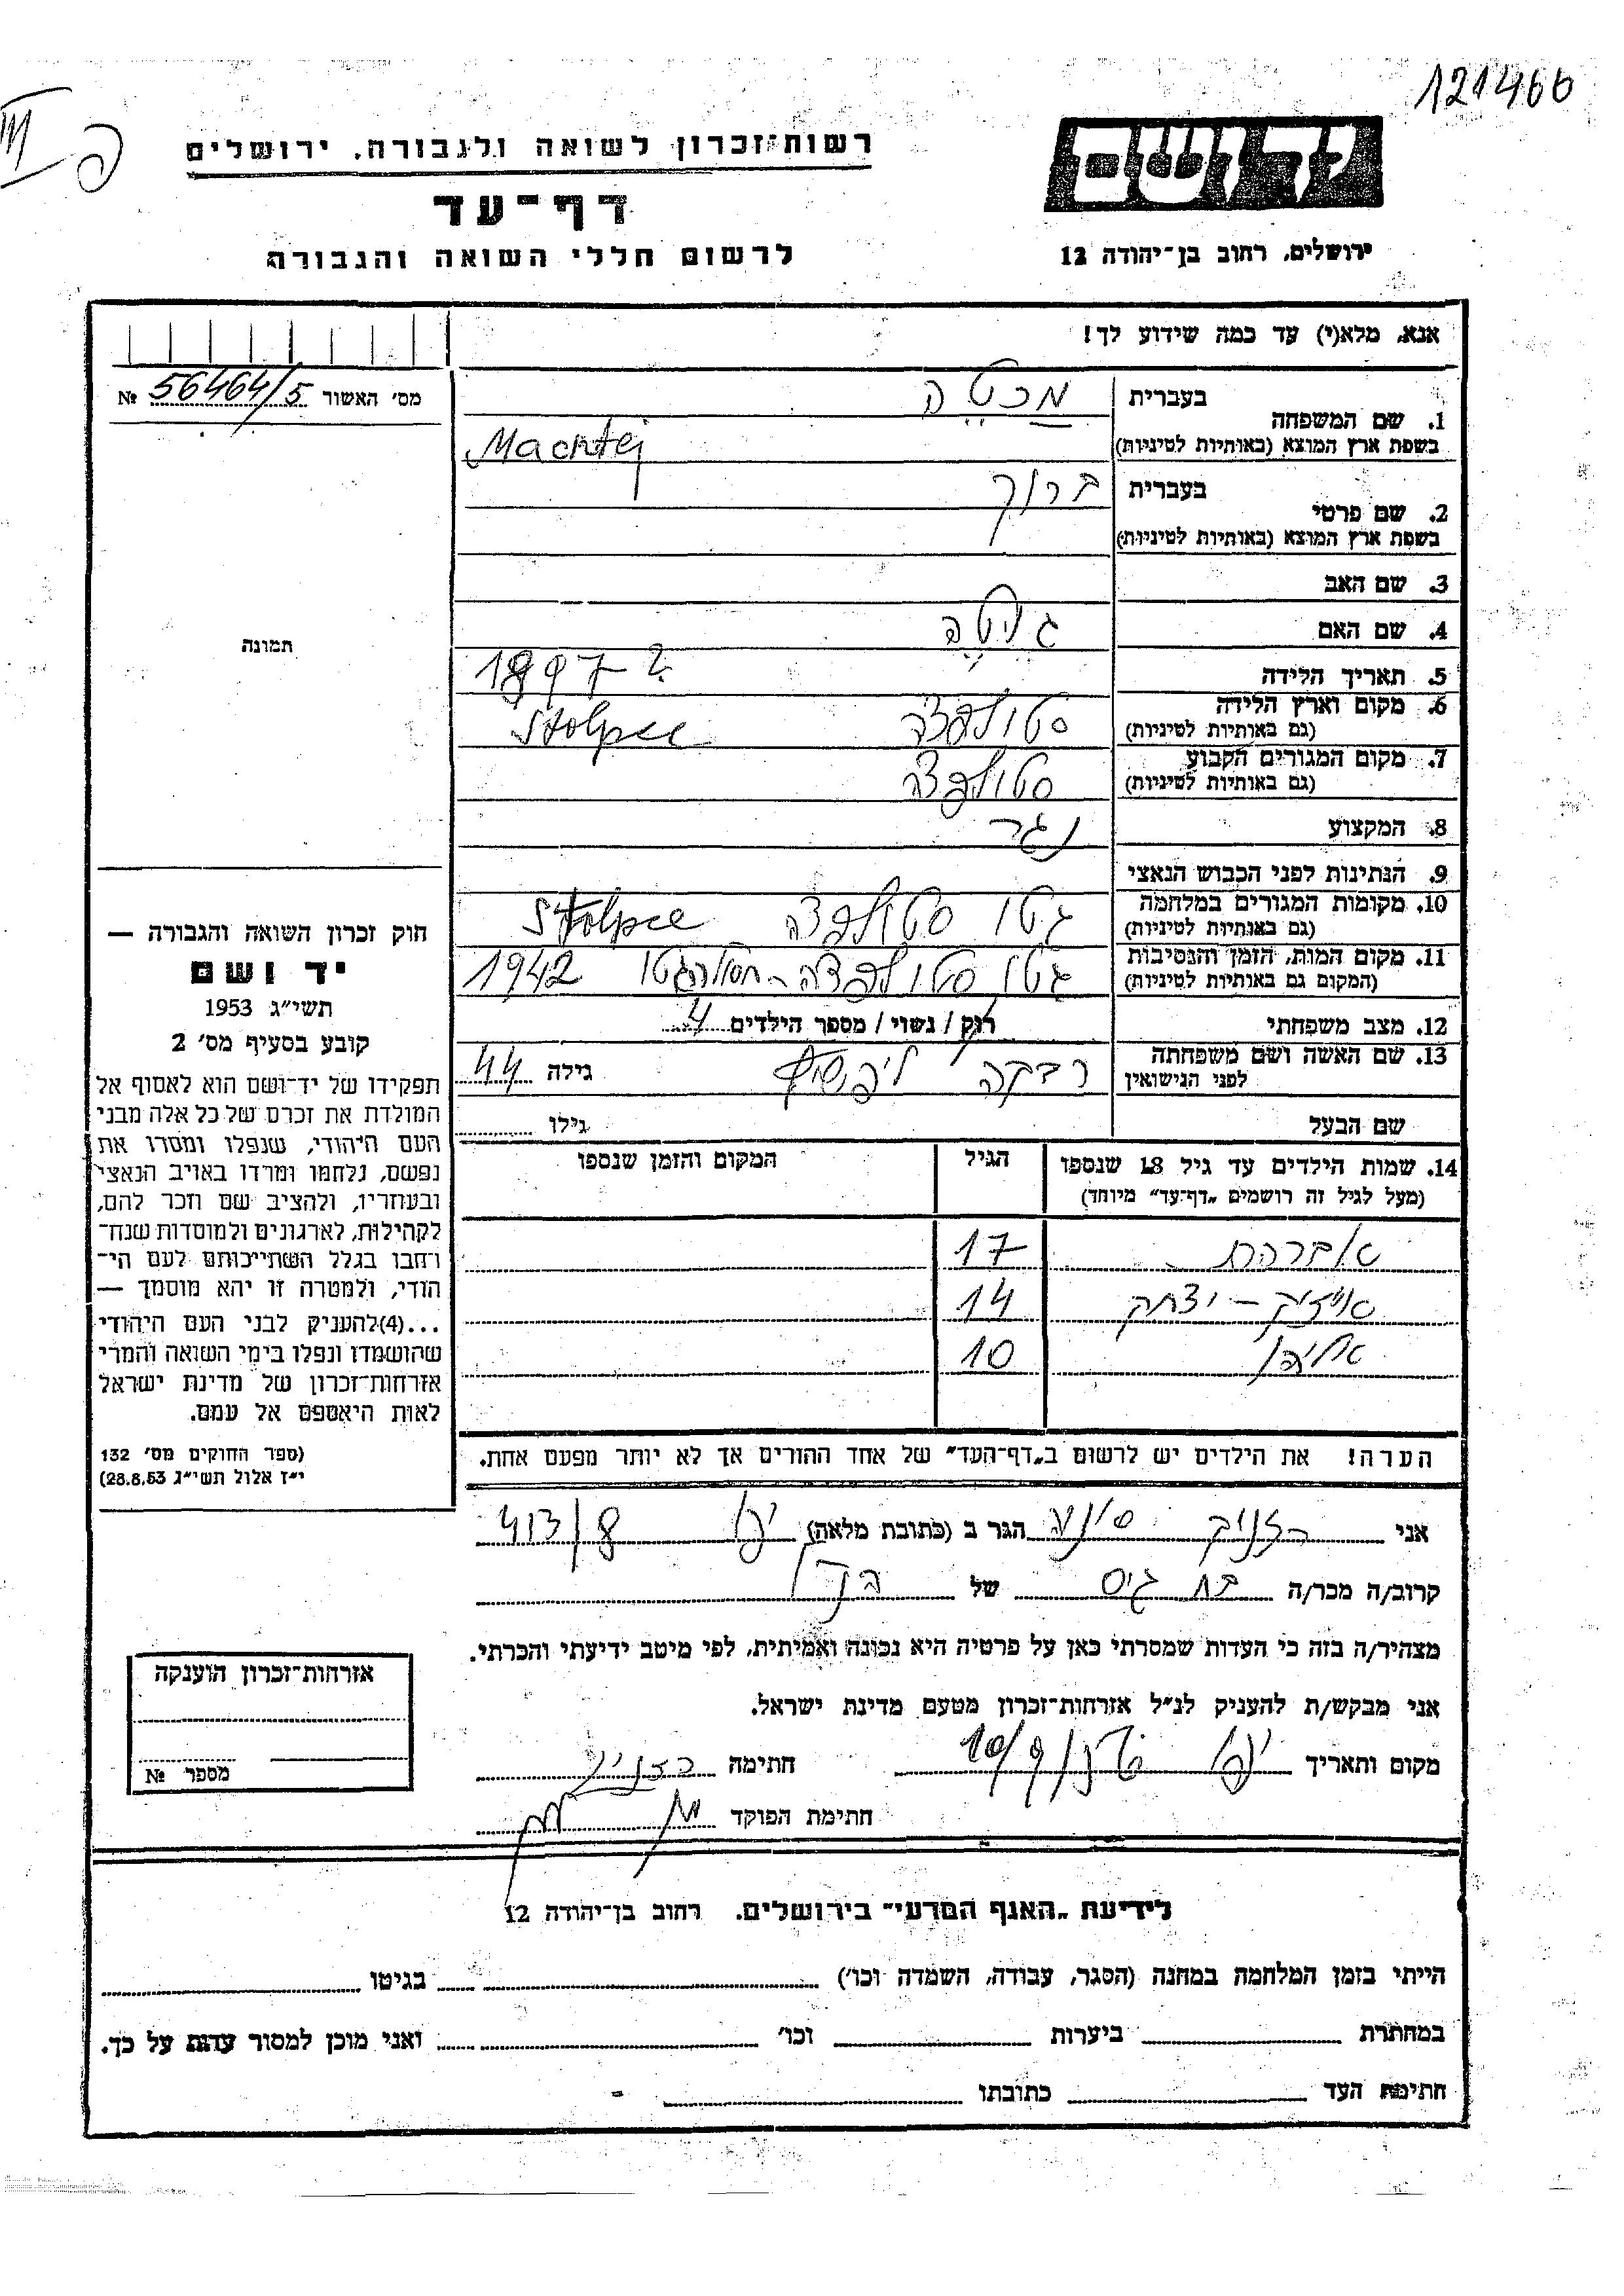 121466
יד ושם
רשות־זכרון לשואה ולגבורה, ירושלים
דף־עד
לרשום חללי השואה והגבורה
ירושלים, רחוב בן־יהודה 12
אנא, מלא(י) עד כמה שידוע לך!
מס׳ האשור 56464/5 №
1. שם המשפחה
בעברית מכטיה
בשפת ארץ המוצא (באותיות לטיניות) Machtej
2. שם פרטי
בעברית ברוך
בשפת ארץ המוצא (באותיות לטיניות)
3. שם האב
4. שם האם גיטה
5. תאריך הלידה 1897 ?
6. מקום וארץ הלידה
(גם באותיות לטיניות) סטולפצה Stolpce
7. מקום המגורים הקבוע
(גם באותיות לטיניות) סטולפצה
8. המקצוע נגר
9. הנתינות לפני הכבוש הנאצי
10. מקומות המגורים במלחמה
(גם באותיות לטיניות) גטו סטולפצה Stolpce
11. מקום המות, הזמן והנסיבות
(המקום גם באותיות לטיניות) גטו סטולפצה - חסול הגטו 1942
12. מצב משפחתי רוק / נשוי / מספר הילדים 4
13. שם האשה ושם משפחתה
לפני הנישואין רבקה ליפשיץ גילה 44
שם הבעל גילו
14. שמות הילדים עד גיל 18 שנספו הגיל המקום והזמן שנספו
(מעל לגיל זה רושמים „דף־עד״ מיוחד)
אברהם 17
אייזיק - יצחק 14
10
הערה! את הילדים יש לרשום ב„דף־העד״ של אחד ההורים אך לא יותר מפעם אחת.
תמונה
חוק זכרון השואה והגבורה —
יד ושם
תשי״ג 1953
קובע בסעיף מס׳ 2
תפקידו של יד־ושם הוא לאסוף אל
המולדת את זכרם של כל אלה מבני
העם היהודי, שנפלו ומסרו את
נפשם, נלחמו ומרדו באויב הנאצי
ובעוזריו, ולהציב שם וזכר להם,
לקהילות, לארגונים ולמוסדות שנח־
רחבו בגלל השתייכותם לעם הי־
הודי, ולמטרה זו יהא מוסמך —
...(4) להעניק לבני העם היהודי
שהושמדו ונפלו בימי השואה והמרי
אזרחות־זכרון של מדינת ישראל
לאות היאספם אל עמם.
(ספר החוקים מס׳ 132
י״ז אלול תשי״ג 28.8.53)
אני רזניק סוניה הגר ב (כתובת מלאה) יפו 413/8
קרוב/ה מכר/ה בת גיס של הנ״ל
מצהיר/ה בזה כי העדות שמסרתי כאן על פרטיה היא נכונה ואמיתית, לפי מיטב ידיעתי והכרתי.
אני מבקש/ת להעניק לנ״ל אזרחות־זכרון מטעם מדינת ישראל.
מקום ותאריך יפו 10/9 חתימה רזניק
חתימת הפוקד
אזרחות־זכרון הוענקה
מספר №
לידיעת „האגף המדעי״ בירושלים, רחוב בן־יהודה 12
הייתי בזמן המלחמה במחנה (הסגר, עבודה, השמדה וכו׳) בגיטו
במחתרת ביערות וכו׳ ואני מוכן למסור עדות על כך.
חתימת העד כתובתו